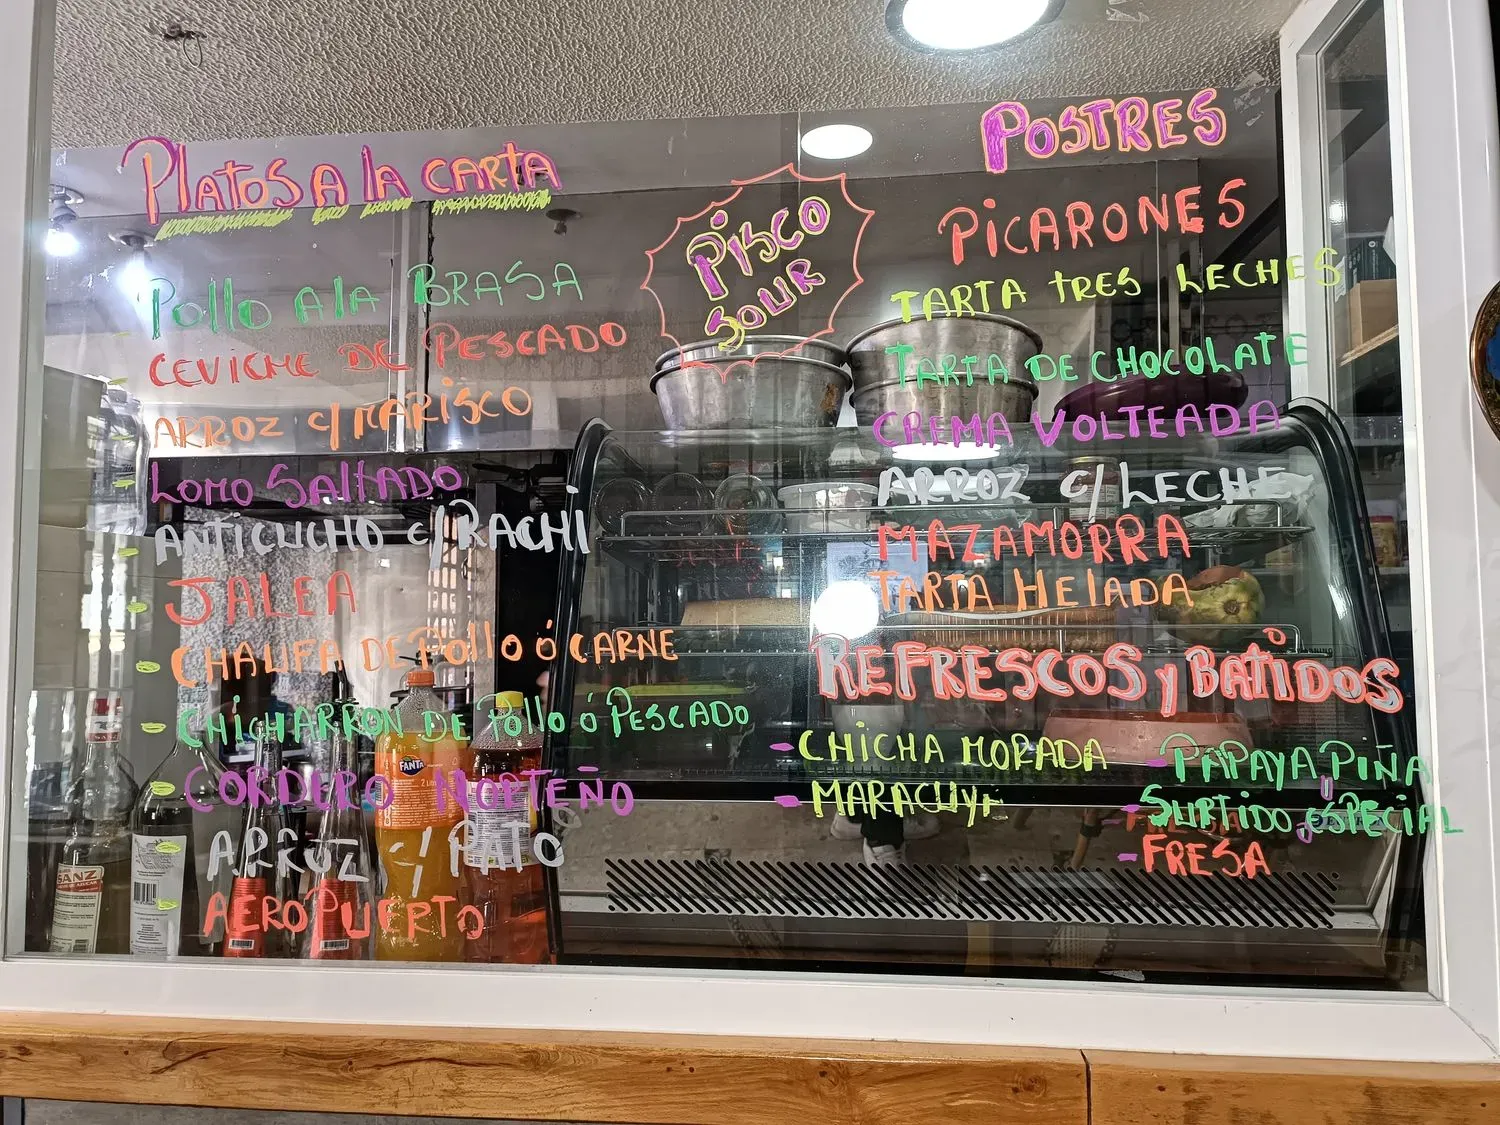 PLATOS A LA CARTA
Pollo A la BRASA
CEVICHE DE PESCADO
ARROZ c/MARISCO
LOMO SAltADO
ANTICUCHO c/RACHI
JALEA
CHAUFA DE Pollo ó CARNE
CHICHARRON DE Pollo ó PESCADO
CORDERO NORTEÑO
ARROZ c/ PATO
AEROPUERTO
PISCO
SOUR
POSTRES
PICARONES
TARTA tRES LECHES
TARTA DE CHOCOLATE
CREMA VOLTEADA
ARROZ c/LECHE
MAZAMORRA
TARTA HELADA
REFRESCOS y BAtIDOS
- CHICHA MORADA
- MARACUYA
- PAPAYA PIÑA
- SURTIDO ESPECIAL
- FRESA
FANTA
SANZ